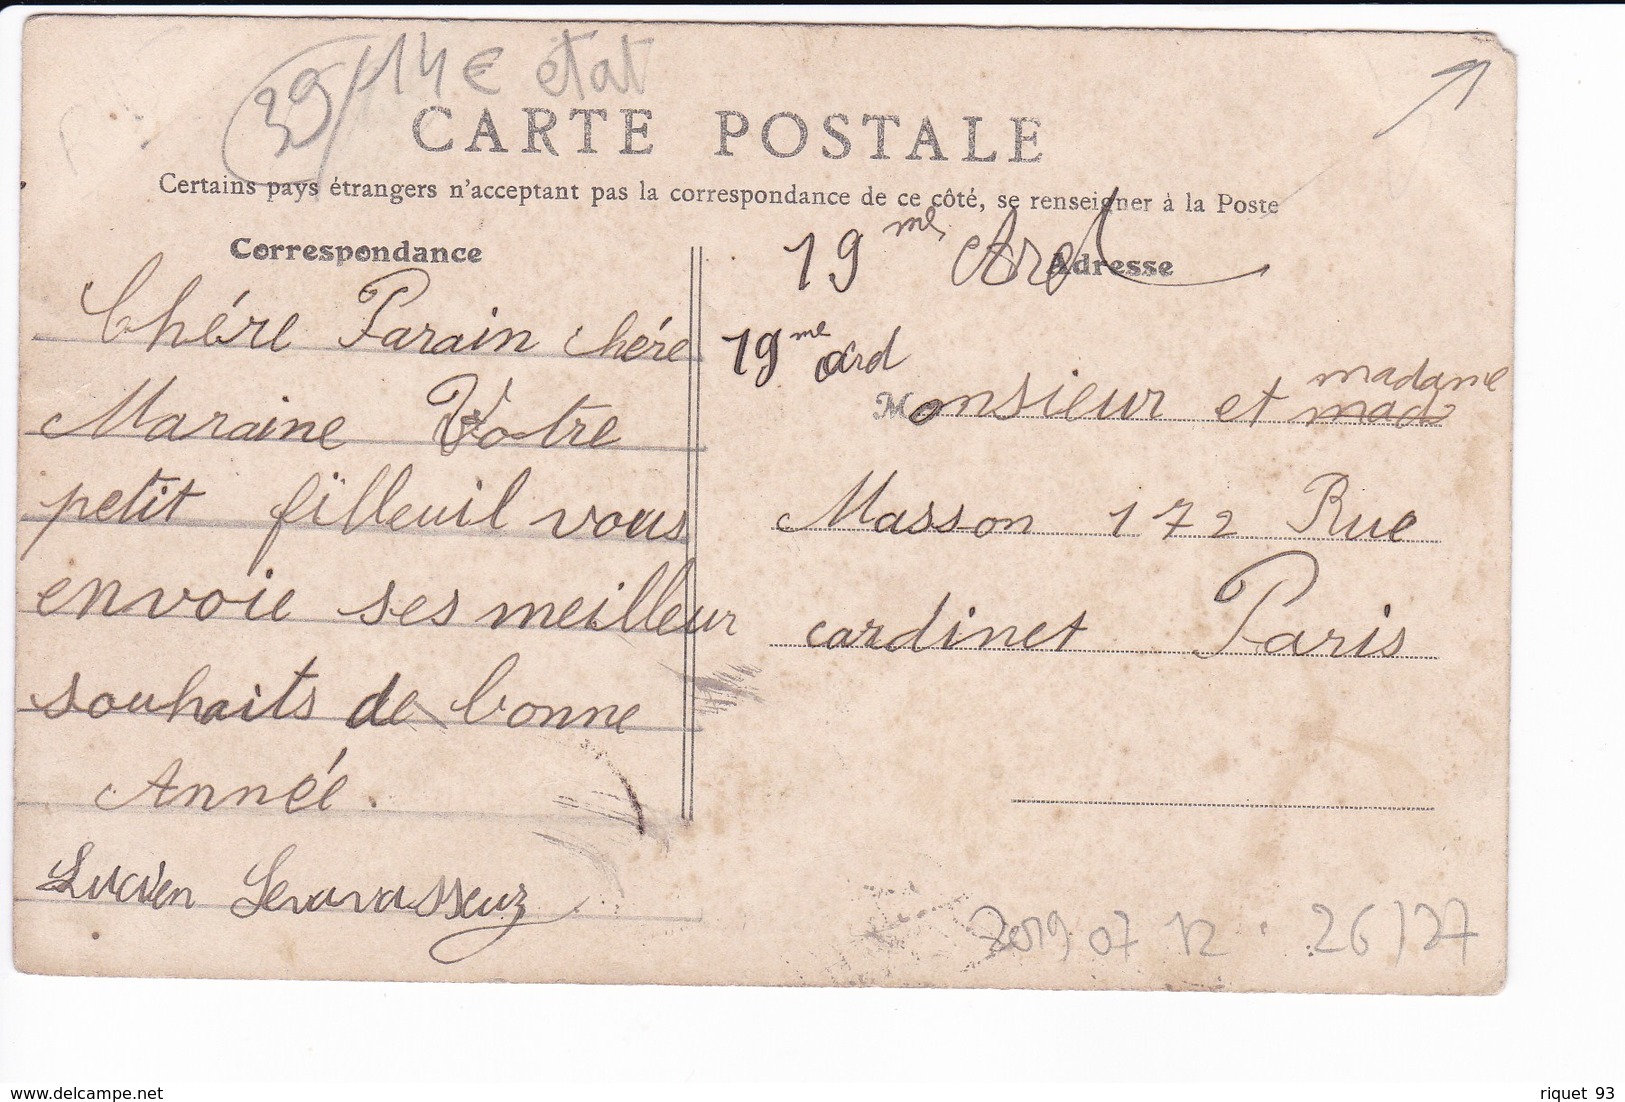 39 14€ état
CARTE POSTALE
Certains pays étrangers n'acceptant pas la correspondance de ce côté, se renseigner à la Poste
Correspondance
Chére Parain chére
Maraine Votre
petit filleuil vous
envoie ses meilleur
souhaits de bonne
Année.
Lucien Levavasseur
Adresse
19me Ard
19me Ard
Monsieur et madame
mad
Masson 172 Rue
cardinet Paris
2019 07 12 . 26/27
riquet 93